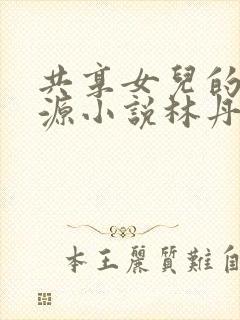 共享女兒的
源小説林丹
本王麗質難自